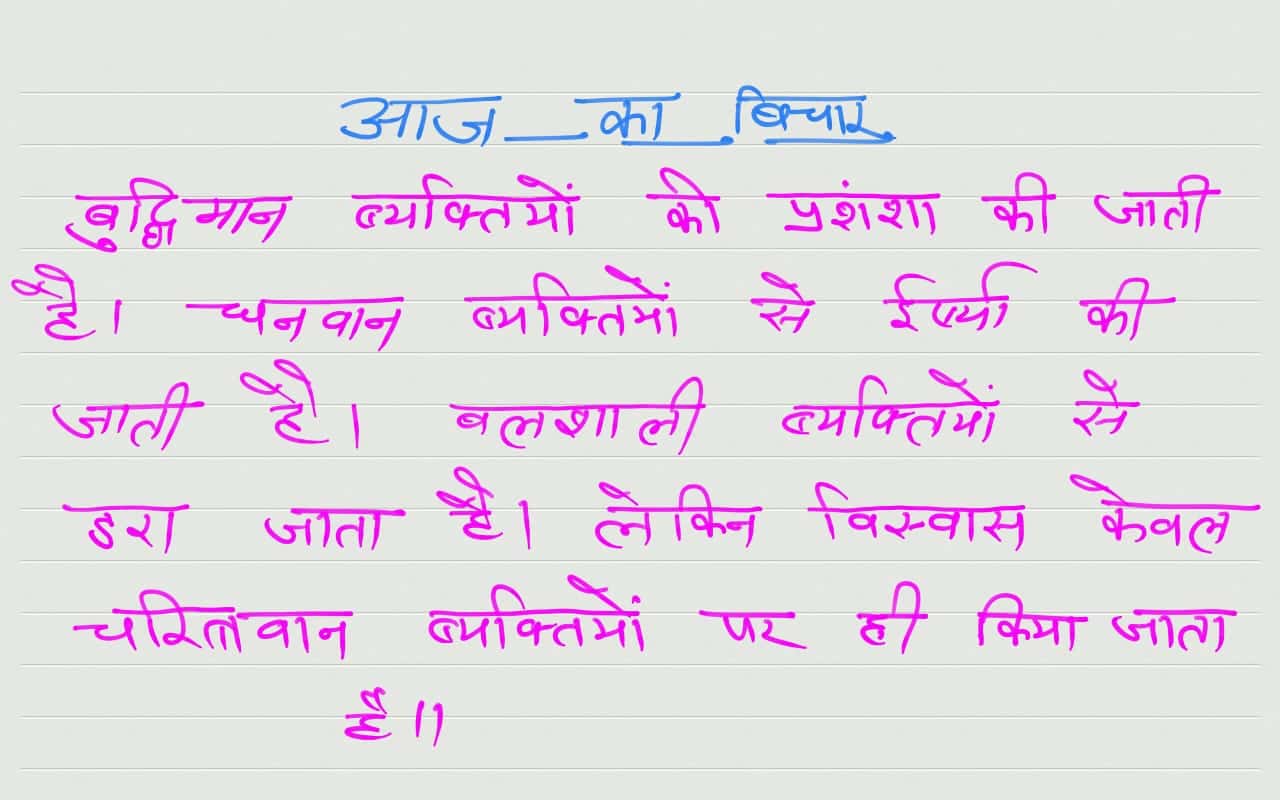 आज का बिचार
बुद्धिमान ब्यक्तियों की प्रशंशा की जाती
है। धनवान ब्यक्तियों से ईर्ष्या की
जाती है। बलशाली ब्यक्तियों से
डरा जाता है। लेकिन विस्वास केवल
चरित्रवान ब्यक्तियों पर ही किया जाता
है॥